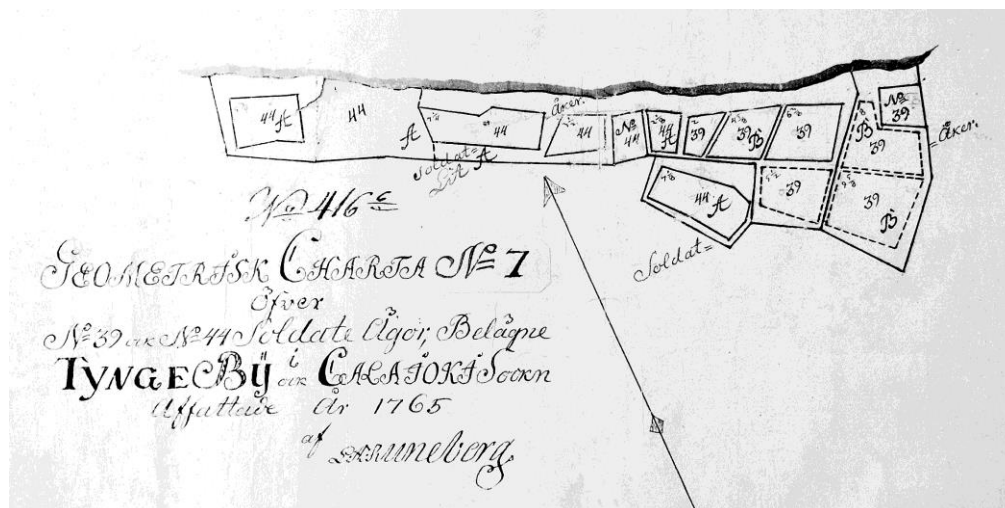 44 A
44
A
44
Åker.
44
No 44
44 A
39
39 B
39
No 39
B
39
Åker.
Soldat=
A
44 A
39
39
B
Soldat=
No 416
GEOMETRISK CHARTA No 7
Öfver
No 39 och No 44 Soldate Ägor, Belägne
i
TYNGE BŸ och CALAJOKJ Sockn
Affattade År 1765
af
Runeberg